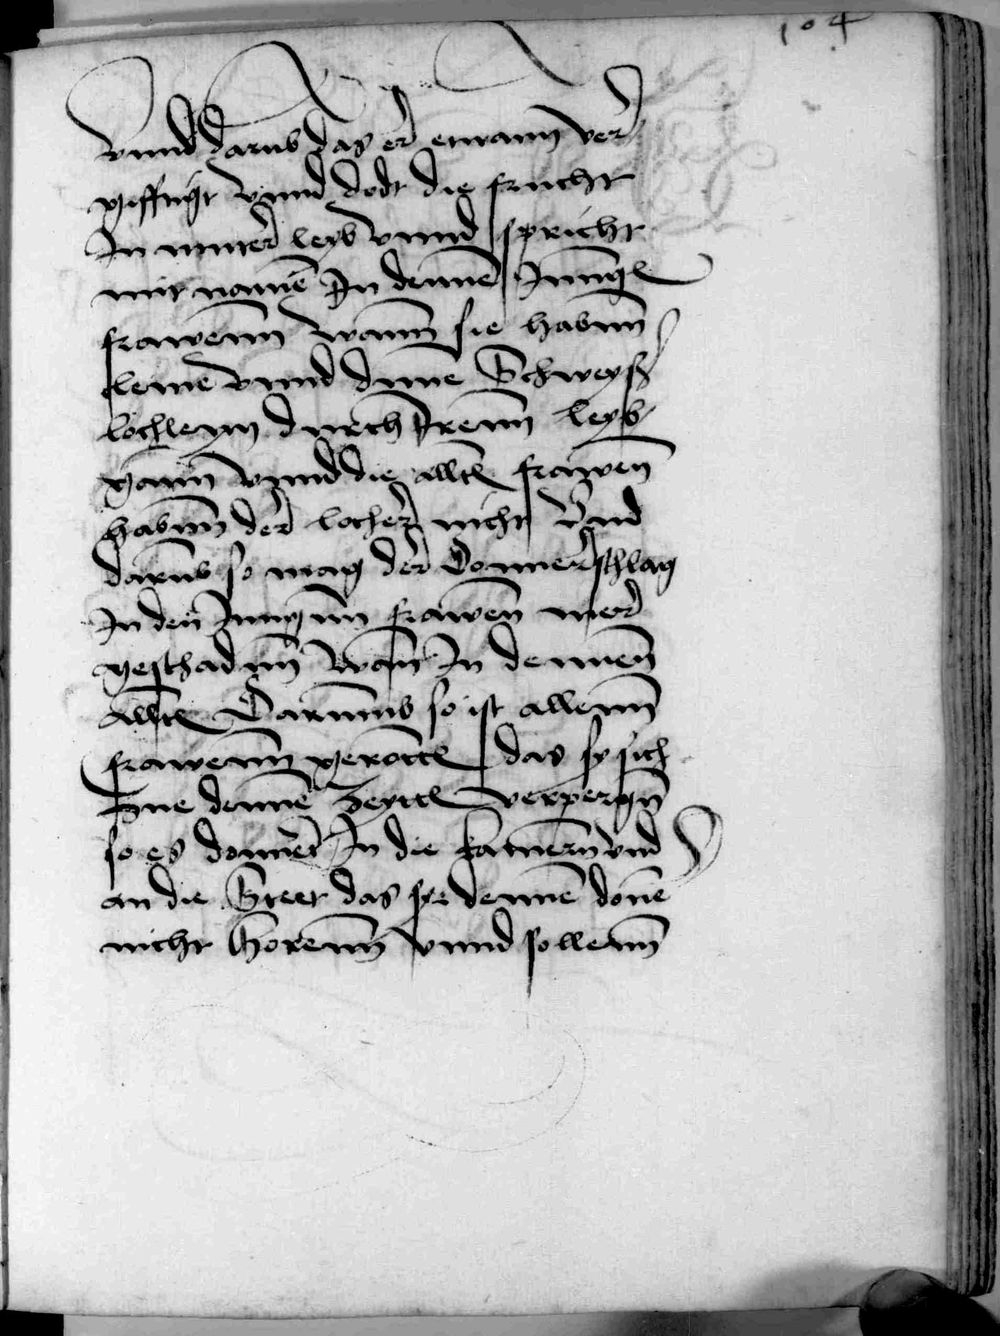 104
Vnnd darub das er etwann ver
gifftigt vnnd dodt die frucht
In mutter leyb vnnd spricht
mit namē In dennē Jungē
frawenn Wann sie habnn
cleine vnnd dinne Schweyß
lochleyn durch Irenn leyb
gann vnnd die alltē frawen
habnn der locher nicht vnd
darub so mag der donnerschlag
In den Jungnn frawen mer
geschadnn wan In dennen
alltē Darumb so ist allenn
frawenn geratē das sy sich
zue dennē zeyttē verpergn
so es donnert In die kamern vnd
an die Stett das sye dennē done
nicht horenn vnnd sollenn